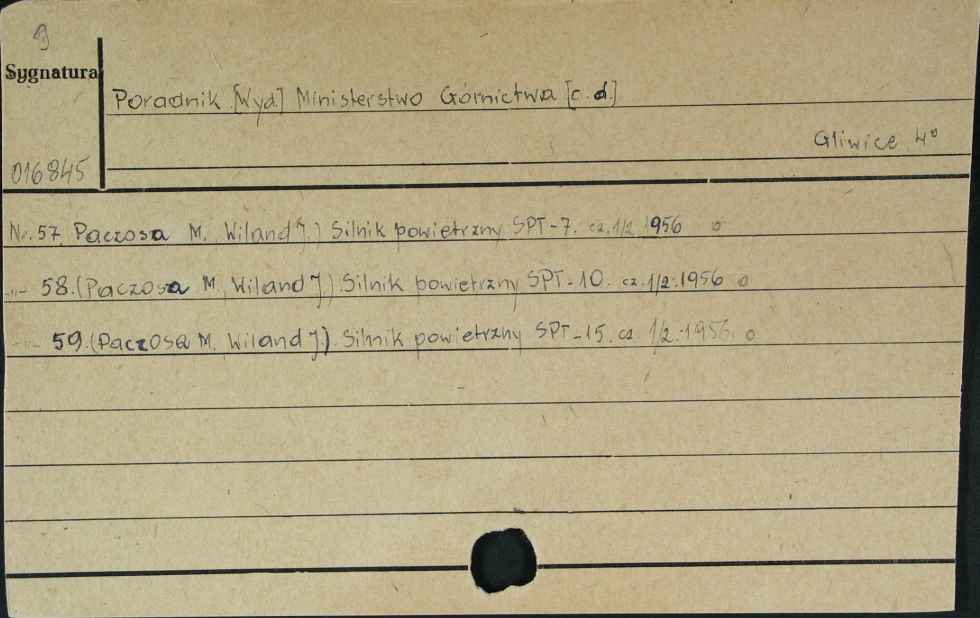 9
Sygnatura
Poradnik [Wyd.] Ministerstwo Górnictwa [c.d.]
Gliwice 4°
016845
Nr. 57. Paczosa M., Wiland J.) Silnik powietrzny SPT-7. cz. 1/2 1956 o
-"- 58. (Paczosa M., Wiland J.) Silnik powietrzny SPT-10. cz. 1/2. 1956 o
-"- 59. (Paczosa M., Wiland J.). Silnik powietrzny SPT-15. cz. 1/2. 1956. o